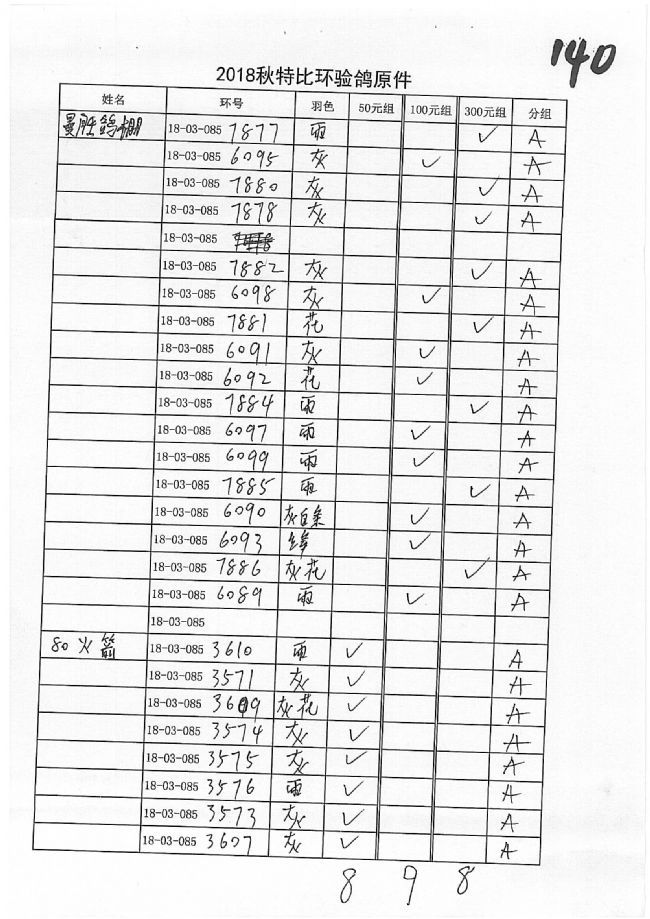 140
2018秋特比环验鸽原件
姓名 环号 羽色 50元组 100元组 300元组 分组
曼胜鸽棚 18-03-085 7877 雨 ✓ A
18-03-085 6095 灰 ✓ A
18-03-085 7880 灰 ✓ A
18-03-085 7878 灰 ✓ A
18-03-085
18-03-085 7882 灰 ✓ A
18-03-085 6098 灰 ✓ A
18-03-085 7881 花 ✓ A
18-03-085 6091 灰 ✓ A
18-03-085 6092 花 ✓ A
18-03-085 7884 雨 ✓ A
18-03-085 6097 雨 ✓ A
18-03-085 6099 雨 ✓ A
18-03-085 7885 雨 ✓ A
18-03-085 6090 灰白条 ✓ A
18-03-085 6093 ✓ A
18-03-085 7886 灰花 ✓ A
18-03-085 6089 雨 ✓ A
18-03-085
80火箭 18-03-085 3610 雨 ✓ A
18-03-085 3571 灰 ✓ A
18-03-085 3609 灰花 ✓ A
18-03-085 3574 灰 ✓ A
18-03-085 3575 灰 ✓ A
18-03-085 3576 雨 ✓ A
18-03-085 3573 灰 ✓ A
18-03-085 3607 灰 ✓ A
8 9 8